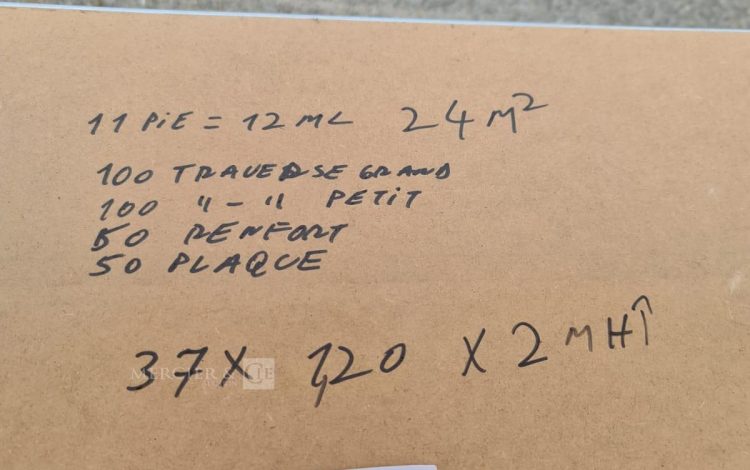 11 PiE = 12 ML 24 M²
100 TRAVERSE GRAND
100 " - " PETIT
50 RENFORT
50 PLAQUE
37 X 1,20 X 2 M HT
MERCIER & CIE